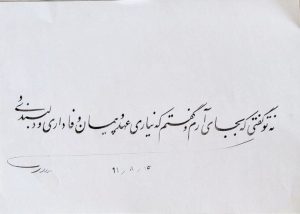 نه تو گفتی که بجای آرم و گفتم که نیاری عهد و پیمان و فاداری و دلبندی و
۹۱/۸/۱۵